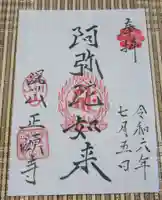 奉拝
令和六年
七月五日
阿弥陀如来
正願寺